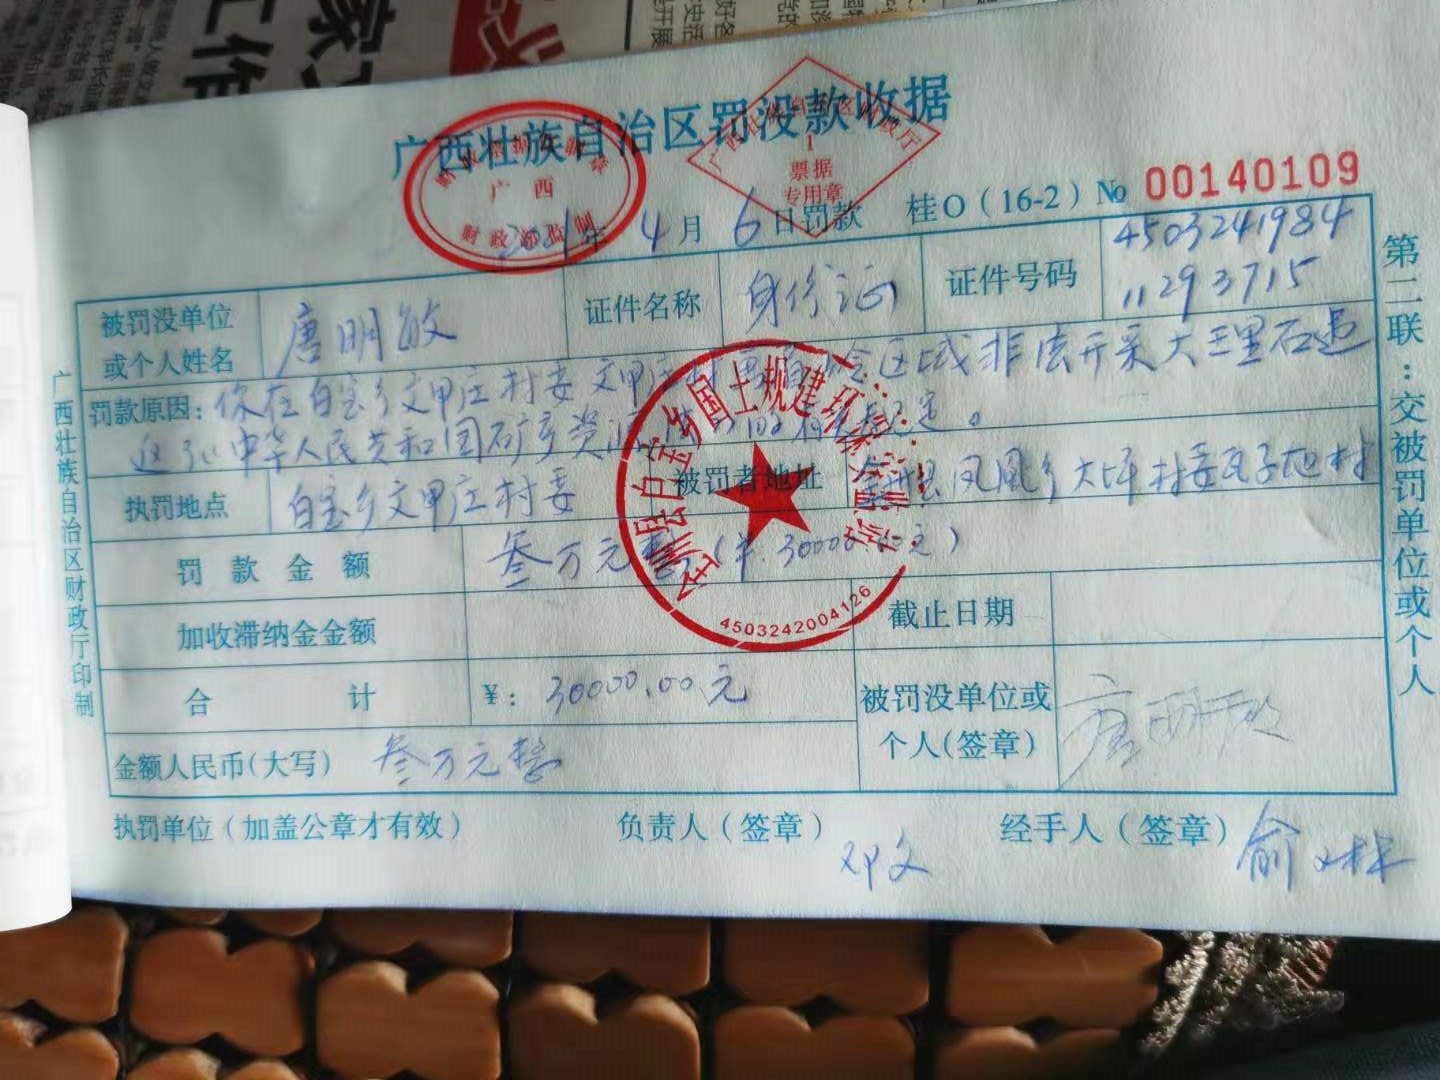 广西壮族自治区罚没款收据
广西
财政部监制
票据
专用章
2021年4月6日罚款 桂O(16-2)№ 00140109
被罚没单位或个人姓名 唐明敏 证件名称 身份证 证件号码 450324198411293715
罚款原因:你在白宝乡文甲庄村委文甲庄村 区域非法开采大理石违
中华人民共和国矿产资源 规定。
执罚地点 白宝乡文甲庄村委 被罚者地址 全州县凤凰乡大坪村委瓦子地村
罚款金额 叁万元整(¥:30000.00元)
加收滞纳金金额 截止日期
合计 ¥:30000.00元 被罚没单位或个人(签章)
金额人民币(大写) 叁万元整
执罚单位(加盖公章才有效) 负责人(签章) 邓文 经手人(签章) 俞
全州县白宝乡国土规建环
4503242004126
第二联:交被罚单位或个人
广西壮族自治区财政厅印制
家
工作